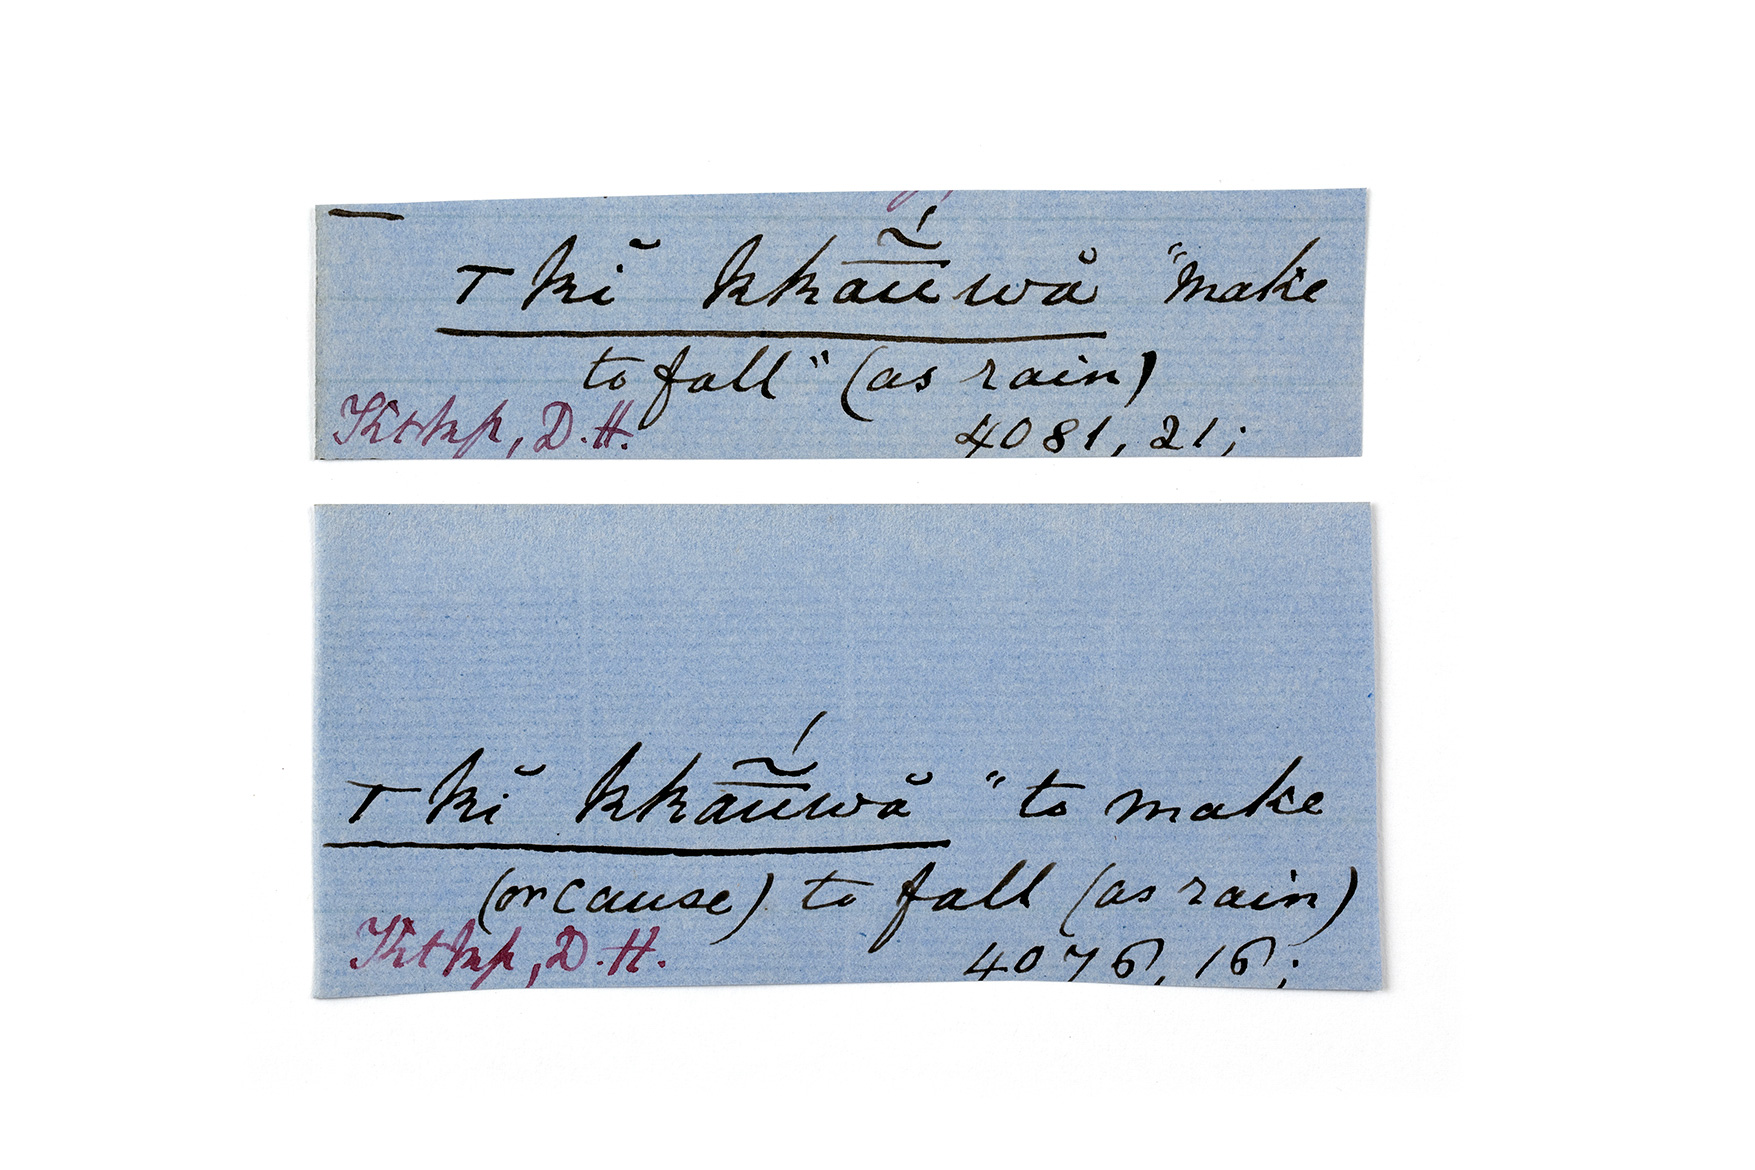 ⊤ kĭ kkau̅̃́wă "make
to fall" (as rain)
Ktkp, D.H. 4081, 21;
⊤ kĭ kkau̅̃́wă "to make
(or cause) to fall (as rain)
Ktkp, D.H. 4076, 16;